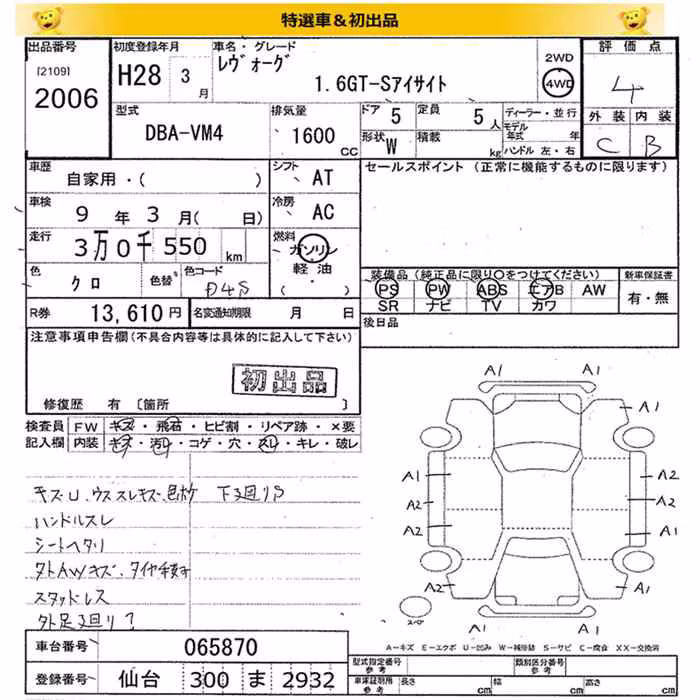 特選車＆初出品
出品番号
[2109]
2006
初度登録年月
H28 3月
車名・グレード
レヴォーグ
1.6GT-Sアイサイト
2WD
4WD
評価点
4
外装 内装
C B
型式
DBA-VM4
排気量
1600
CC
ドア 5
定員 5人
形状 W
積載 kg
ディーラー・並行
モデル年式 年
ハンドル 左・右
車歴
自家用・( )
シフト AT
セールスポイント (正常に機能するものに限ります)
車検
9年3月( 日)
冷房 AC
走行
3万0千550km
燃料
ガソリン
軽油
(・)
色
クロ
色替
色コード
D4S
装備品 (純正品に限り○をつけてください)
PS PW ABS エアB AW
SR ナビ TV カワ
新車保証書
有・無
R券 13,610円
名変通知期限 月 日
後日品
注意事項申告欄(不具合内容等は具体的に記入して下さい)
初出品
修復歴 有 [箇所 ]
検査員記入欄
FW キズ・飛石・ヒビ割・リペア跡・×要
内装 キズ・汚レ・コゲ・穴・スレ・キレ・破レ
キズU、ウススレキズ、色ボケ 下廻りS
ハンドルスレ
シートヘタリ
タトAWキズ、タイヤ
スタッドレス
外足廻り？
A1 A1
A1 A1
A1 A2
A2 A2
A2 A1
A2 A1
A1 A1
スペア
A-キズ E-エクボ U-凹み W-補修跡 S-サビ C-腐食 XX-交換済
車台番号 065870
登録番号 仙台 300 ま 2932
型式指定番号 参考
類別区分番号 参考
車庫証明用 参考 長さ cm 幅 cm 高さ cm